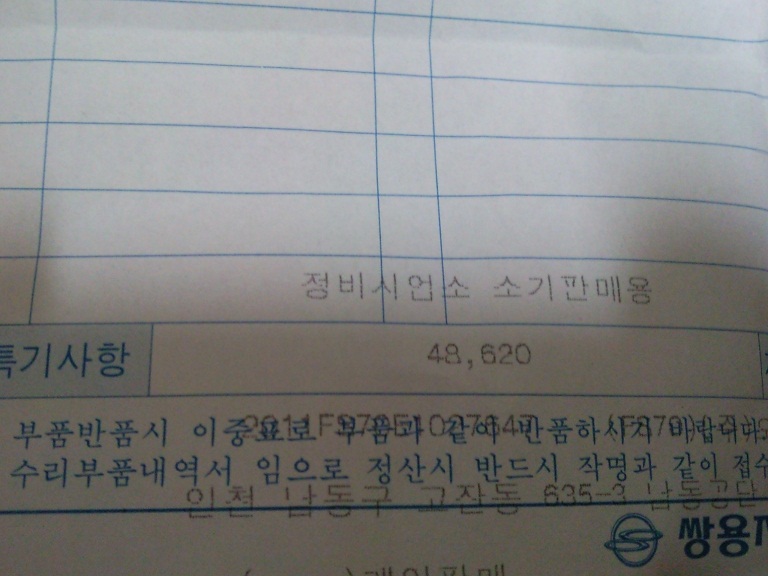 정비사업소 소기판매용
특기사항 48,620
부품반품시 이중표로 부품과 같이 반품하시기 바랍니다.
수리부품내역서 임으로 정산시 반드시 작명과 같이 접수
인천 남동구 고잔동 635-3 남동공단
쌍용
개인판매